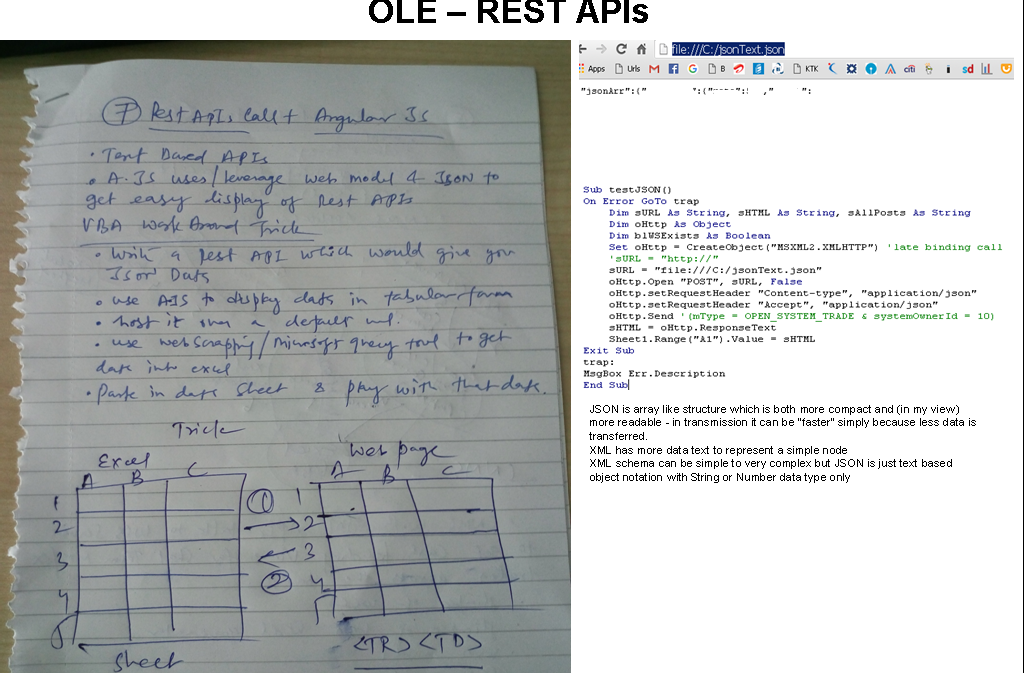 OLE – REST APIs
7 Rest APIs Call + Angular JS
• Text Based APIs
• A.JS uses/leverage web model & JSON to
get easy display of Rest APIs
VBA Work Around Trick
• Write a Rest API which would give you
JSON Data
• use AJS to display data in tabular form
• host it over a default url.
• use webScrapping/Microsoft query tool to get
data into excel
• Park in data sheet & play with that data.
Trick
Excel
A B C
1
2
3
4
5
Sheet
1
2
Web page
A B C
1
2
3
4
5
<TR> <TD>
file:///C:/jsonText.json
Apps Urls B KTK citi sd
"jsonArr":("
Sub testJSON()
On Error GoTo trap
Dim sURL As String, sHTML As String, sAllPosts As String
Dim oHttp As Object
Dim blWSExists As Boolean
Set oHttp = CreateObject("MSXML2.XMLHTTP") 'late binding call
'sURL = "http://"
sURL = "file:///C:/jsonText.json"
oHttp.Open "POST", sURL, False
oHttp.setRequestHeader "Content-type", "application/json"
oHttp.setRequestHeader "Accept", "application/json"
oHttp.Send '(mType = OPEN_SYSTEM_TRADE & systemOwnerId = 10)
sHTML = oHttp.ResponseText
Sheet1.Range("A1").Value = sHTML
Exit Sub
trap:
MsgBox Err.Description
End Sub
JSON is array like structure which is both more compact and (in my view)
more readable - in transmission it can be "faster" simply because less data is
transferred.
XML has more data text to represent a simple node
XML schema can be simple to very complex but JSON is just text based
object notation with String or Number data type only